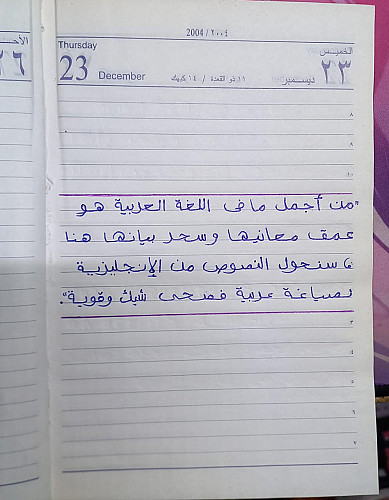 2004 / ٢٠٠٤
Thursday
الخميس
23 December
٢٣ ديسمبر
١١ ذو القعدة / ١٤ كيهك
الأحـ
٢٦
٨
٩
١٠
"من أجمل ما فى اللغة العربية هو
عمق معانيها وسحر بيانها هنا
سنحول النصوص من الإنجليزية
لصياغة عربية فصحى وقوية".
٣
٤
٥
٦
٧